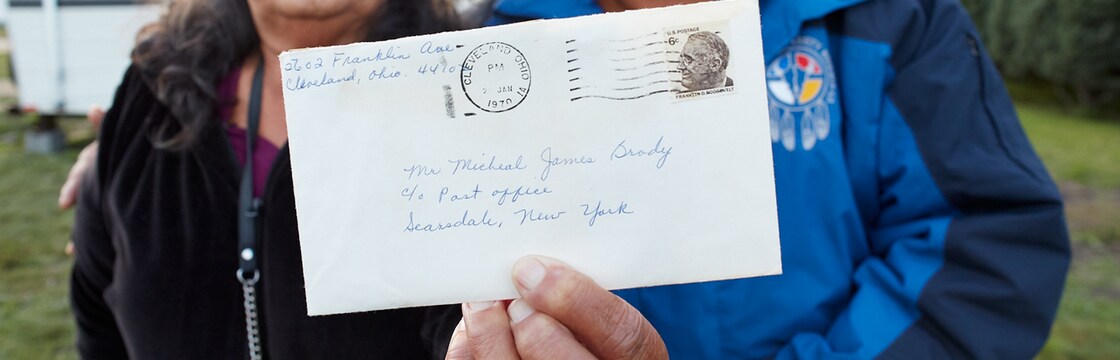 2602 Franklin Ave
Cleveland, Ohio. 4410
CLEVELAND OHIO
PM
JAN
1970
U.S. POSTAGE
6¢
FRANKLIN D. ROOSEVELT
Mr Micheal James Brody
c/o Post office
Scarsdale, New York